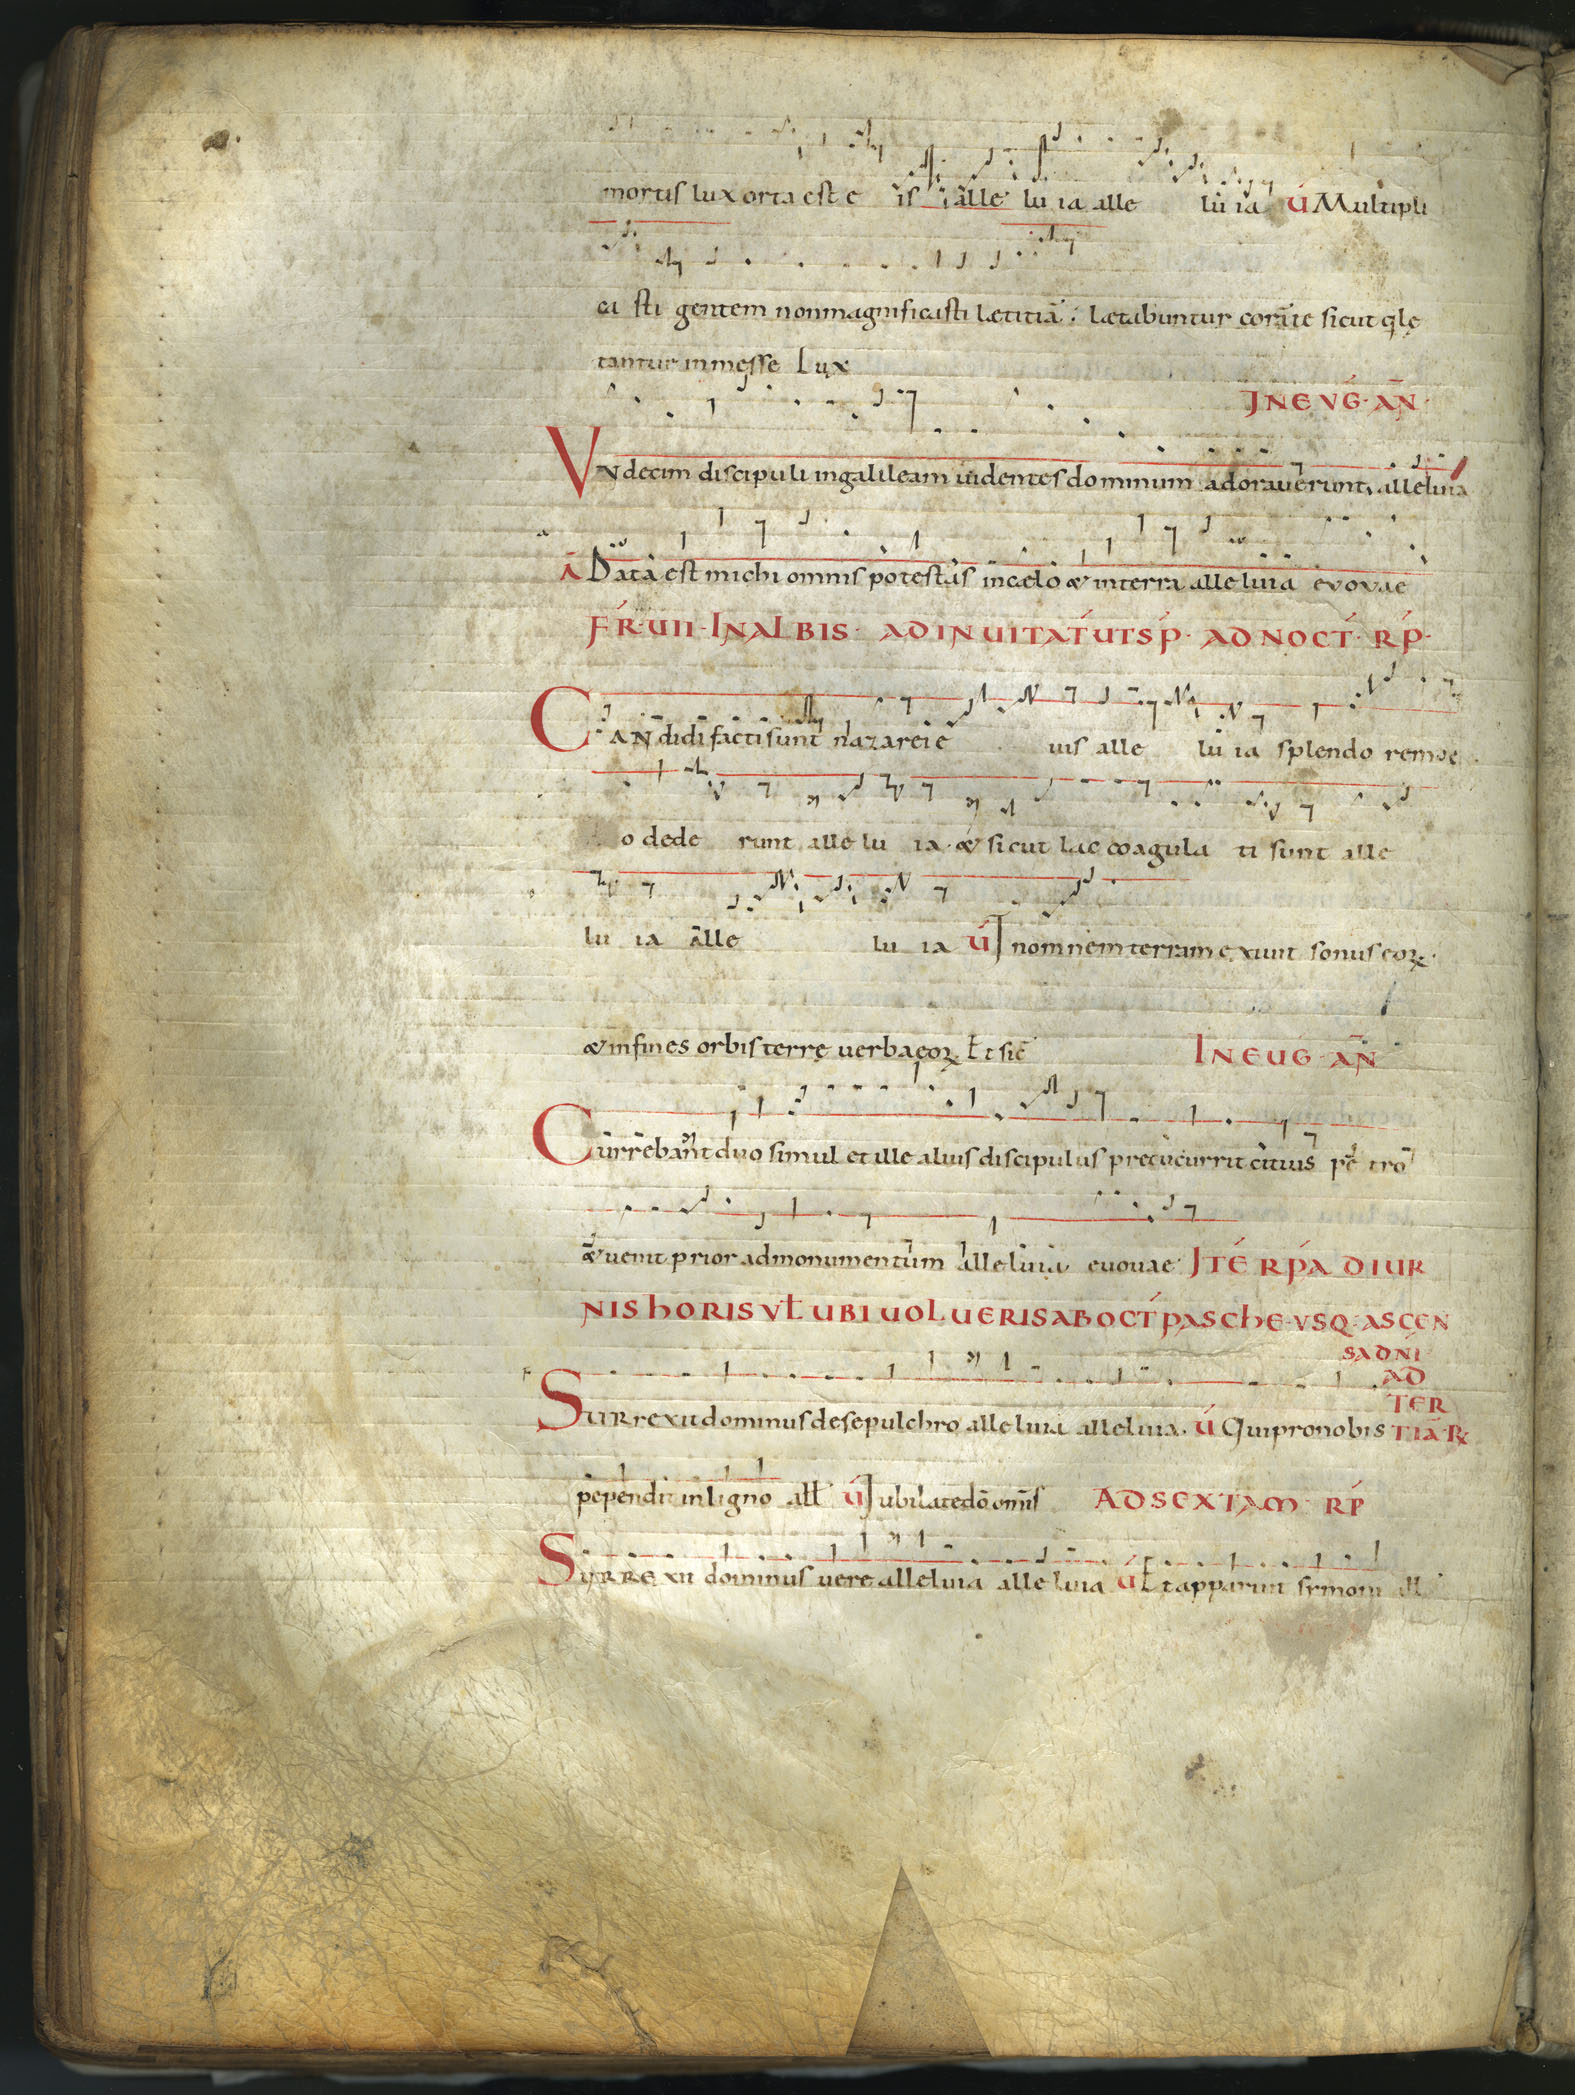 mortis lux orta est e is alle lu ia alle lu ia V́ Multipli
ca sti gentem non magnificasti lætitiā. lætabuntur corā te sicut q̄ lę
tantur in messe Lux
IN EVḠ· AN̄·
Vndecim discipuli in galileam uidentes dominum adorauerunt, alleluia
Ā Data est michi omnis potestas in cælo & in terra alleluia evovae
FR̄·VII·IN ALBIS· AD INUITAT́ UT SP̄· AD NOCT́· RP̄·
CANdidi facti sunt nazarei e uis alle lu ia splendo rem de
o dede runt alle lu ia· & sicut lac coagula ti sunt alle
lu ia alle lu ia V́ In omnem terram exiuit sonus eoꝝ·
& in fines orbis terrę uerba eoꝝ Et sic̄
IN EUG· AN̄
Currebant duo simul et ille alius discipulus precucurrit citius pe tro
& uenit prior ad monumentum alleluia euouae ITĒ RP̄A DIUR
NIS HORIS VŁ UBI UOLUERIS AB OCT́ PASCHE·VSQ: ASCEN
SA DNĪ
AD
TER
SURrexit dominus de sepulchro alleluia alleluia· V́ Qui pro nobis TIĀ·R℣
pependit in ligno all V́ Iubilate dō omīs AD SEXTAM RP̄
SURRExit dominus uere alleluia alleluia V́ Et apparuit symoni all